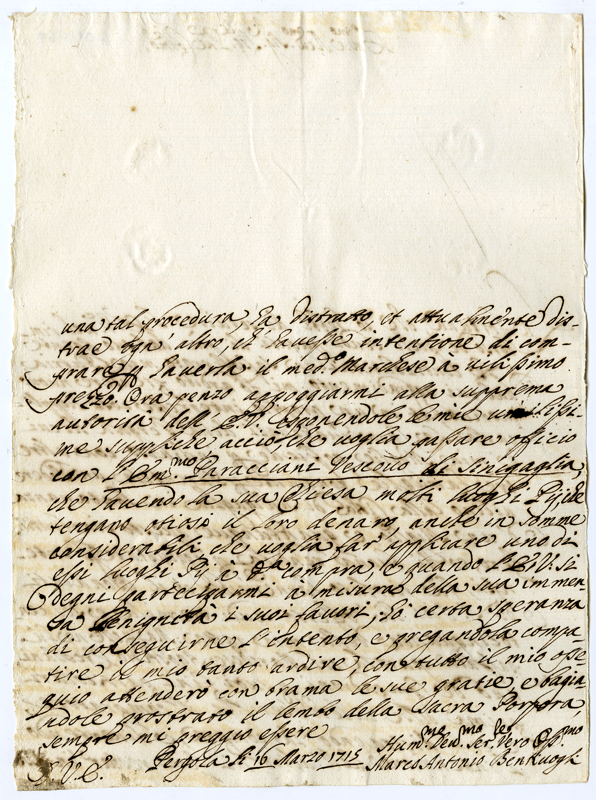 una tal procedura, hà distratto, et attualmente dis-
trae ogn' altro, ch' havesse intentione di com-
prare p haverla il med.º Marchese à vilissimo
prezzo. Ora penzo appoggiarmi alla supprema
autorità dell' E.V. esponendole le mie umilissi-
me suppliche acciò, che voglia passare officio
con l' Em.mo Paracciani Vescovo di Sinegaglia,
che havendo la sua Chiesa molti luoghi Pij, che
tengano otioso il loro denaro, anche in somme
considerabili, che voglia far' applicare uno di
essi luoghi Pij à d.ta compra, e quando l' E.V. si
degni parteciparmi à misura della sua immen-
sa benignità i suoi favori, hò certa speranza
di conseguirne l' intento, e pregandola compa-
tire il mio tanto ardire, con tutto il mio osse-
quio attenderò con brama le sue gratie, e bagia-
ndole prostrato il lembo della Sacra Porpora,
sempre mi preggio essere
D. V. E. Pergola li 16 Marzo 1715
Hum.me Dev.mo Ser.re Vero Obl.mo
Marco Antonio